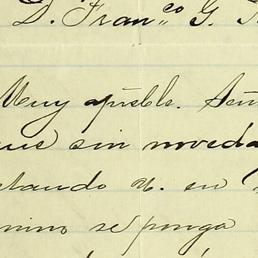 D. Franco G.
Muy apreble. Señ
que sin noveda
stando U. en
mino se ponga